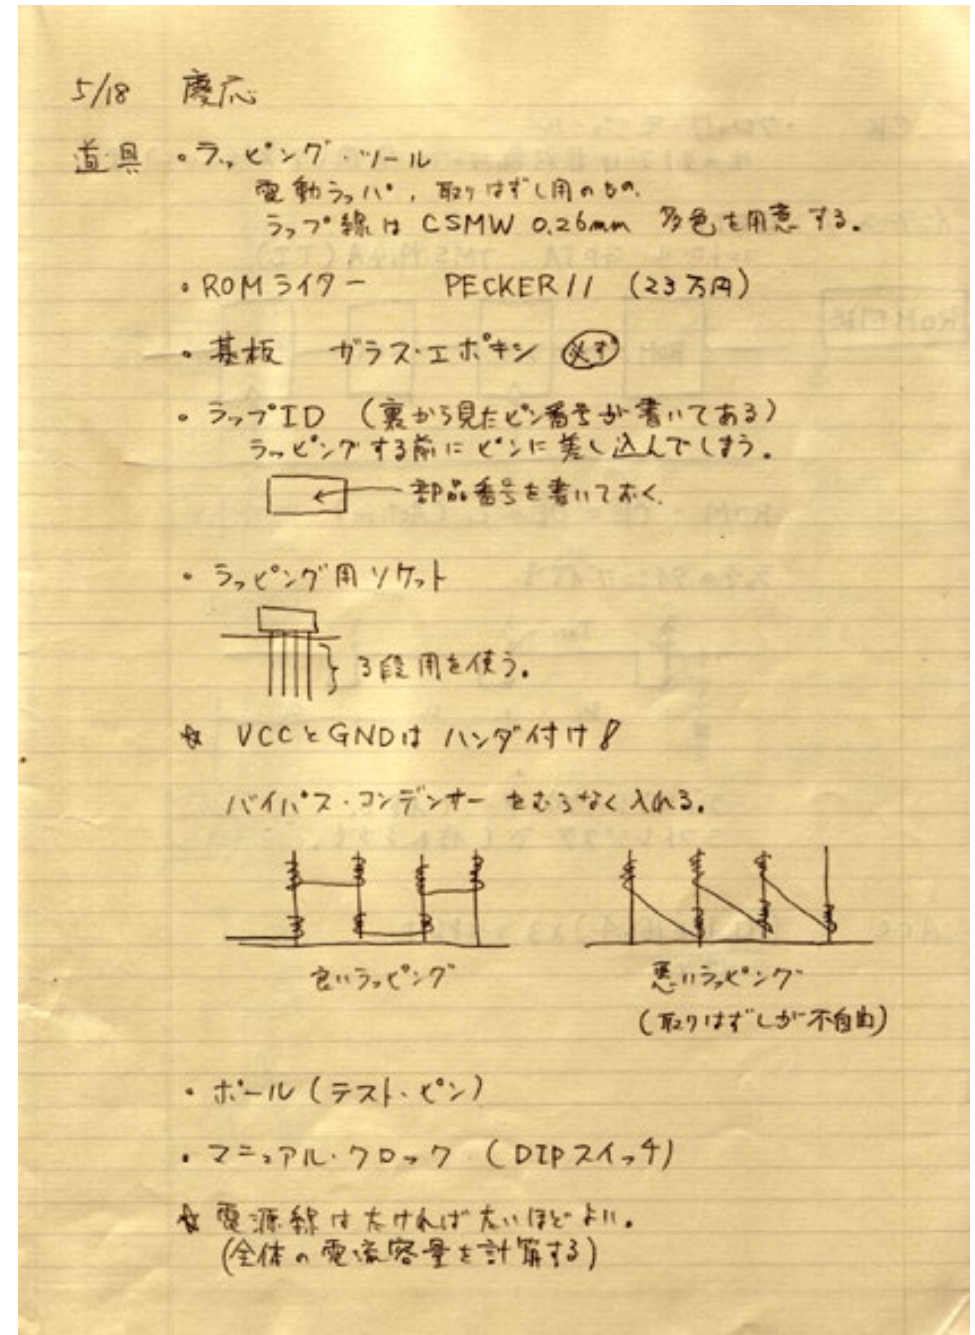 5/18 慶応
道具 ・ラッピング・ツール
電動ラッパ, 取りはずし用のもの.
ラップ線は CSMW 0.26mm 多色を用意する.
・ROMライター PECKER11 (23万円)
・基板 ガラス・エポキシ 必ず
・ラップID (裏から見たピン番号が書いてある)
ラッピングする前にピンに差し込んでしまう.
部品番号を書いておく.
・ラッピング用ソケット
3段用を使う.
☆ VCCとGNDは ハンダ付け!
バイパス・コンデンサー をむらなく入れる.
良いラッピング 悪いラッピング
(取りはずしが不自由)
・ポール(テスト・ピン)
・マニュアル・クロック (DIPスイッチ)
☆ 電源線は太ければ太いほどよい.
(全体の電流容量を計算する)